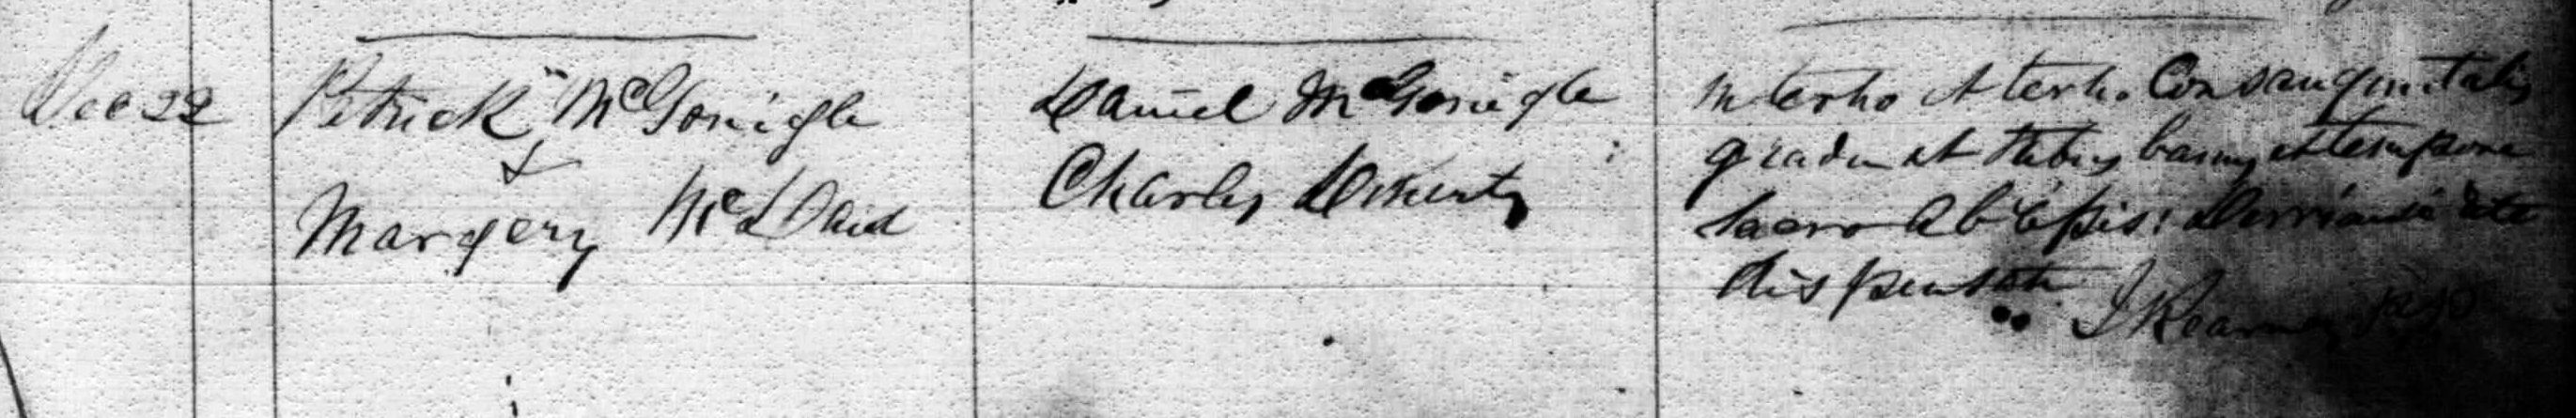 Dec 22
Patrick McGonigle
&
Margery McDaid
Daniel McGonigle
Charles
In tertio et tertio Consanguinitatis
gradu et bannis et tempore
sacro ab Epis:
dispensati
J Kearney